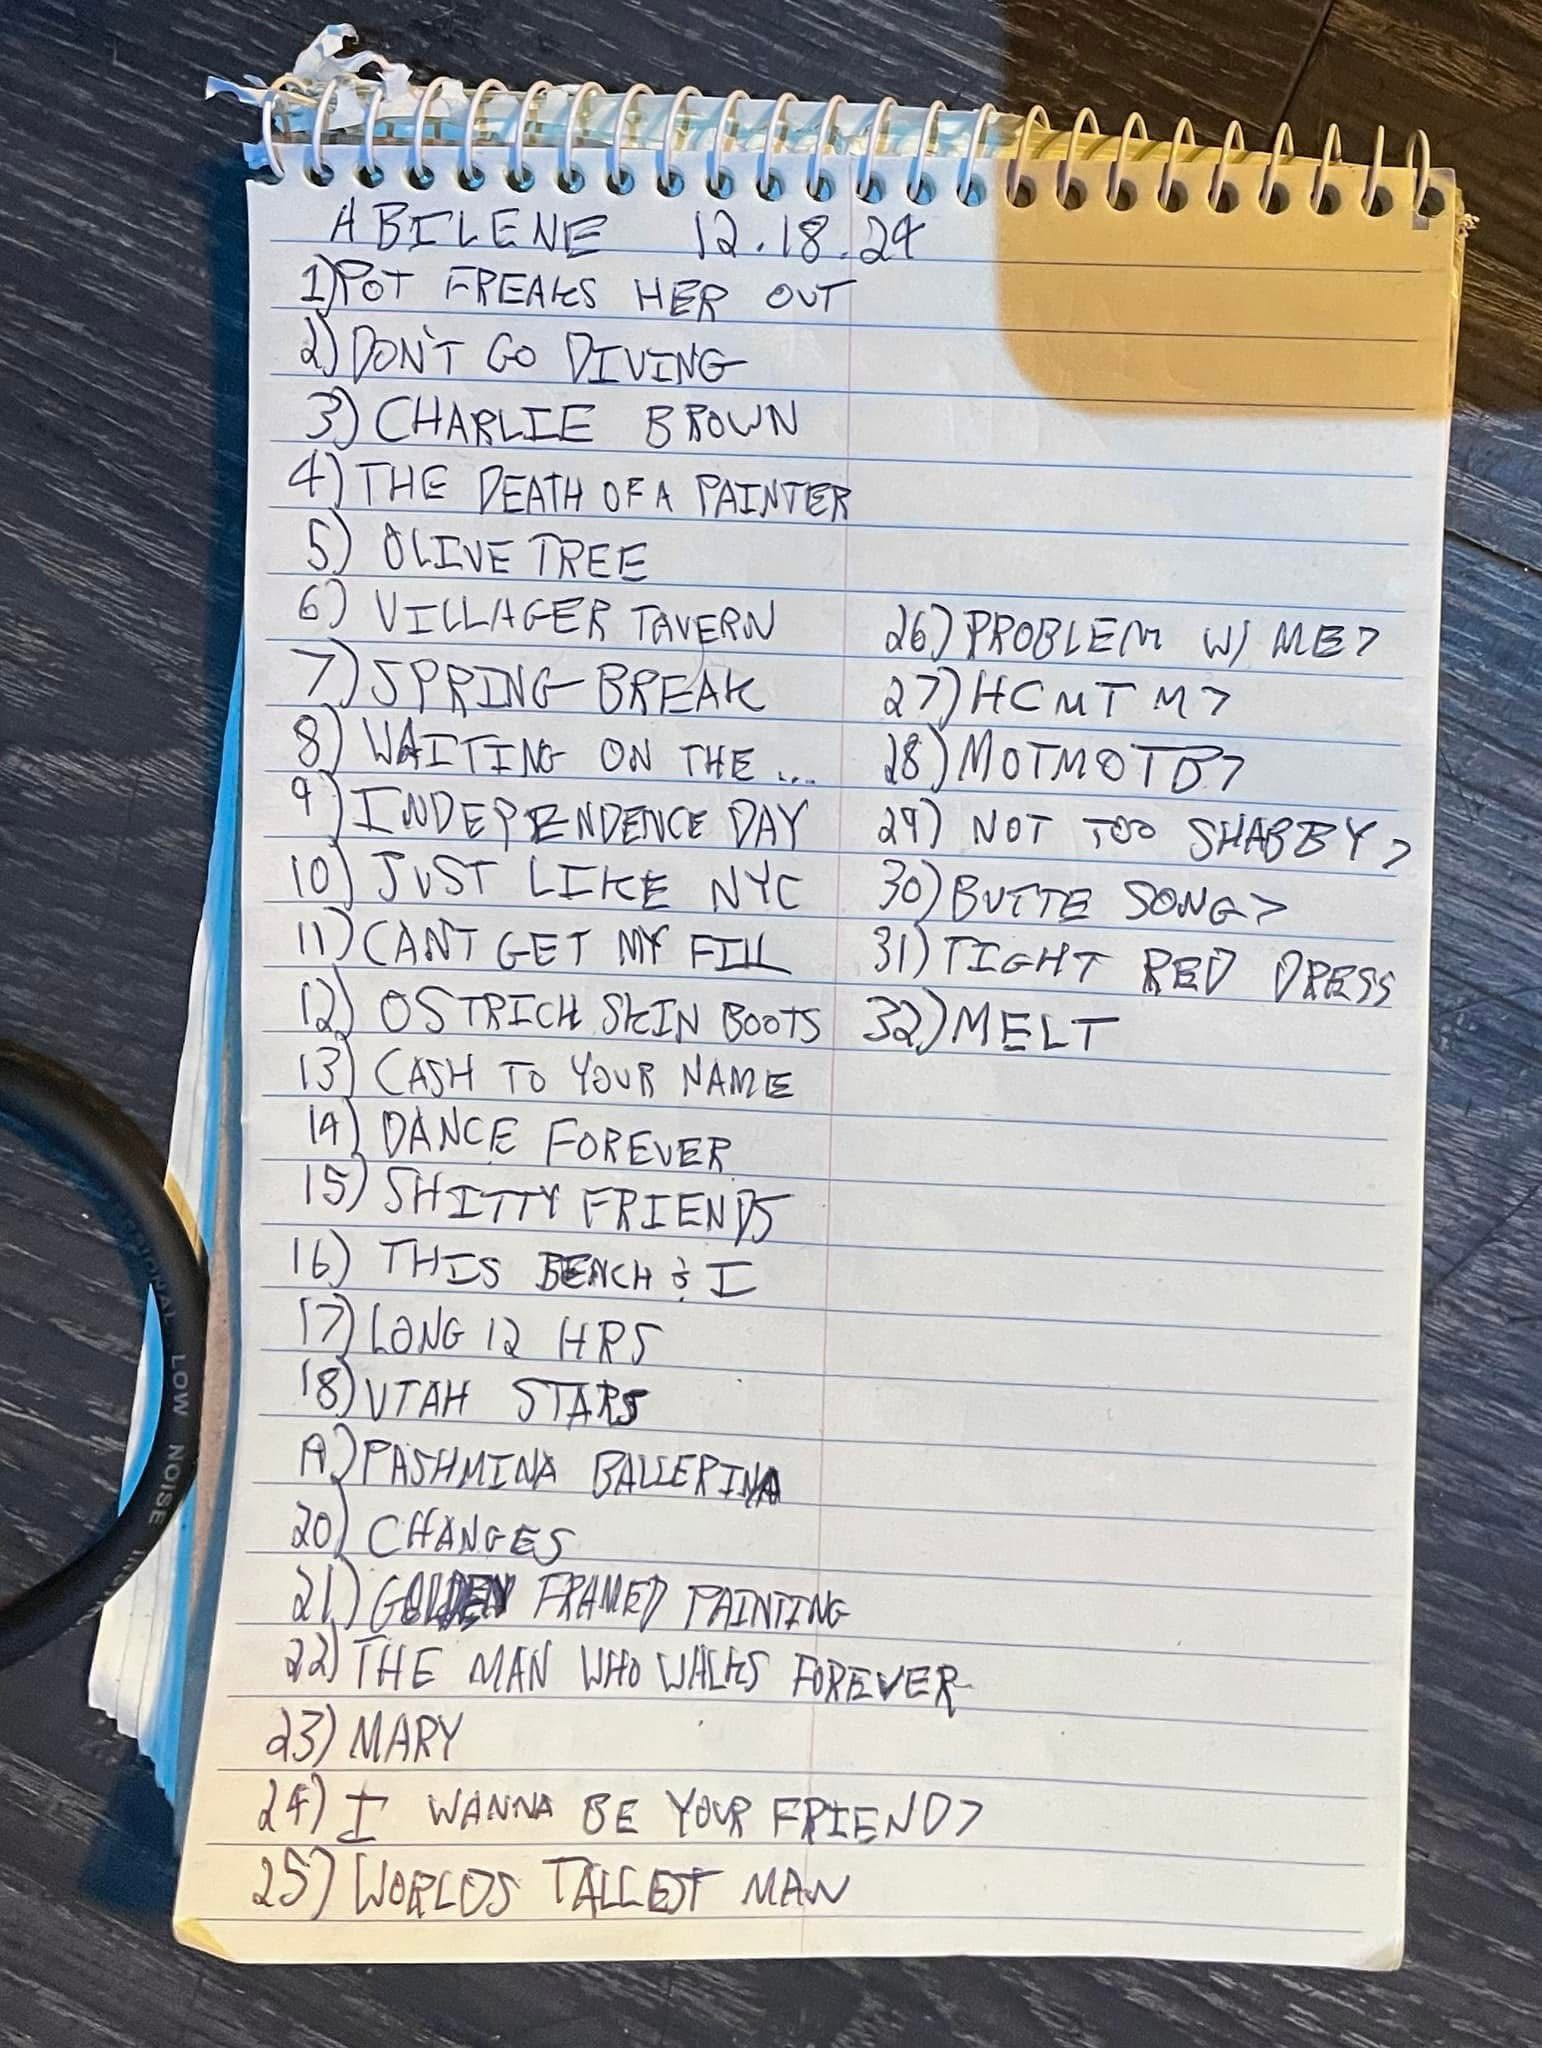 ABILENE 12.18.24
1) POT FREAKS HER OUT
2) DON'T GO DIVING
3) CHARLIE BROWN
4) THE DEATH OF A PAINTER
5) OLIVE TREE
6) VILLAGER TAVERN
7) SPRING BREAK
8) WAITING ON THE ...
9) INDEPENDENCE DAY
10) JUST LIKE NYC
11) CANT GET MY FILL
12) OSTRICH SKIN BOOTS
13) CASH TO YOUR NAME
14) DANCE FOREVER
15) SHITTY FRIENDS
16) THIS BENCH & I
17) LONG 12 HRS
18) UTAH STARS
19) PASHMINA BALLERINA
20) CHANGES
21) GOLDEN FRAMED PAINTING
22) THE MAN WHO WALKS FOREVER
23) MARY
24) I WANNA BE YOUR FRIEND>
25) WORLDS TALLEST MAN
26) PROBLEM W/ ME>
27) HCMTM>
28) MOTMOTB>
29) NOT TOO SHABBY>
30) BUTTE SONG>
31) TIGHT RED DRESS
32) MELT
LOW NOISE